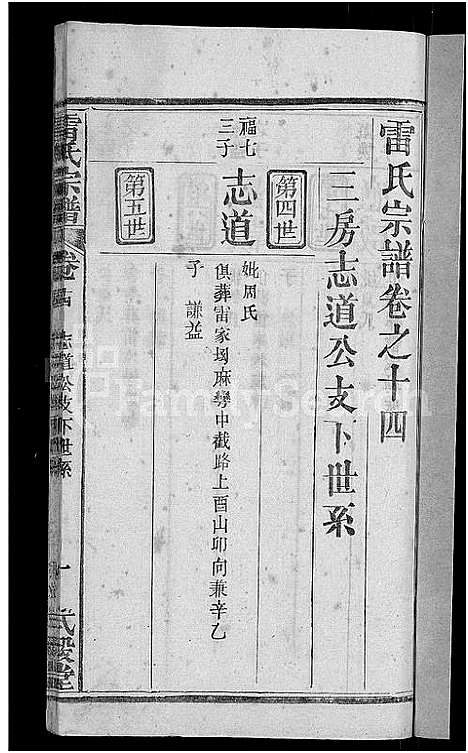 雷氏宗譜卷之十四
三房志道公支下世系
第四世
福七
三子
志道
妣周氏
俱葬雷家坳麻彎中截路上酉山卯向兼辛乙
子 謙益
第五世
雷氏宗譜
卷 志道公支下世系
一
FamilySearch